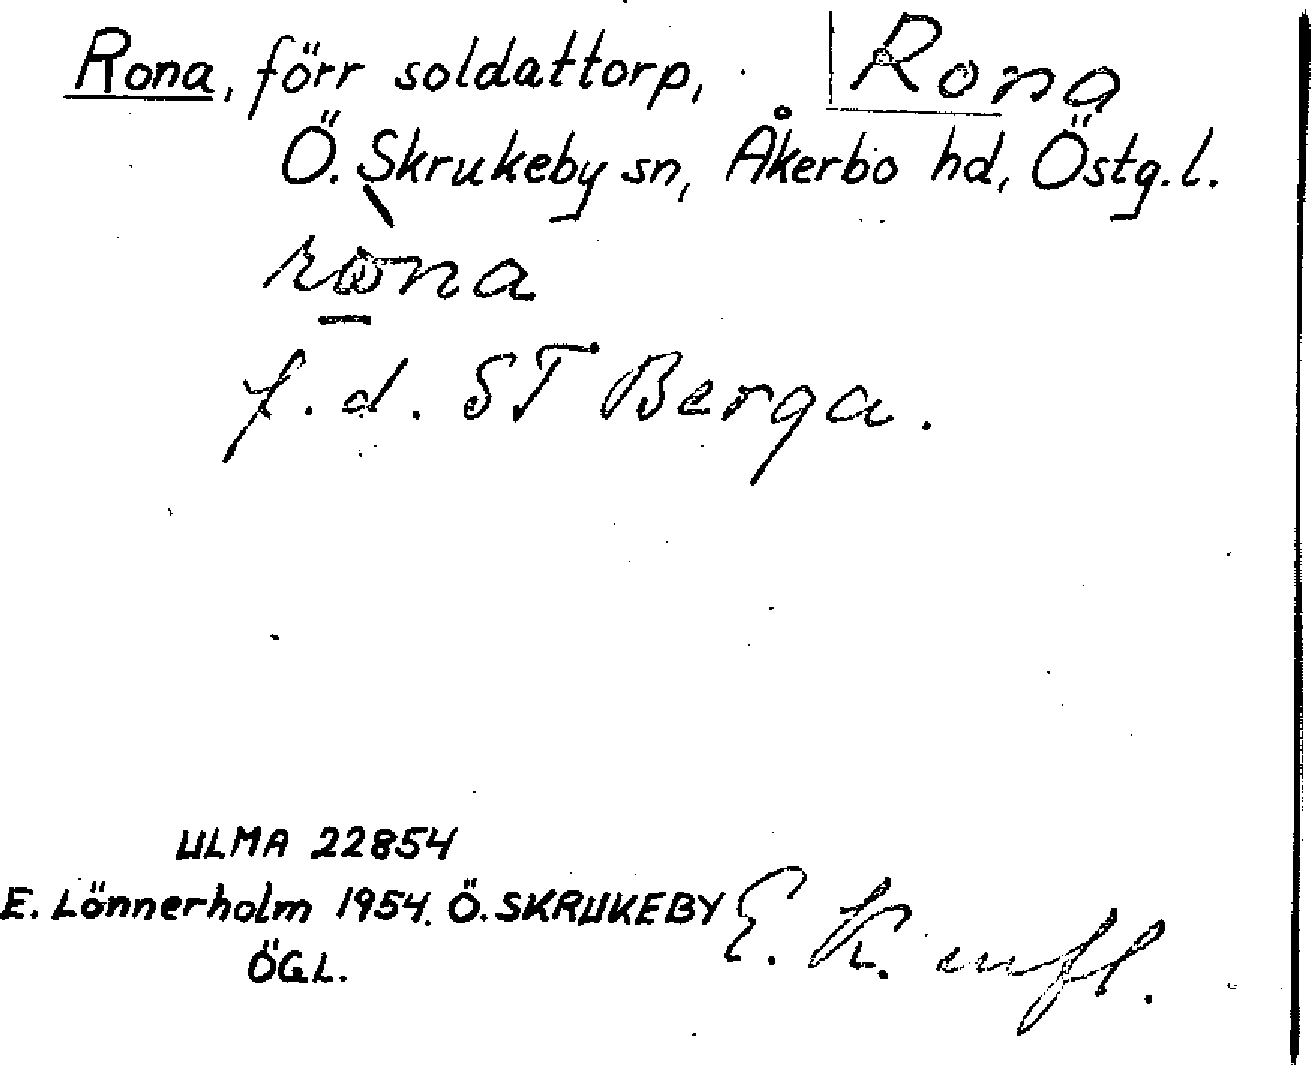 Rona, förr soldattorp, Rona
Ö. Skrukeby sn, Åkerbo hd, Östg.l.
f.d. ST Berga.
ULMA 22854
E. Lönnerholm 1954. Ö. SKRUKEBY
ÖGL.
E. K. mfl.